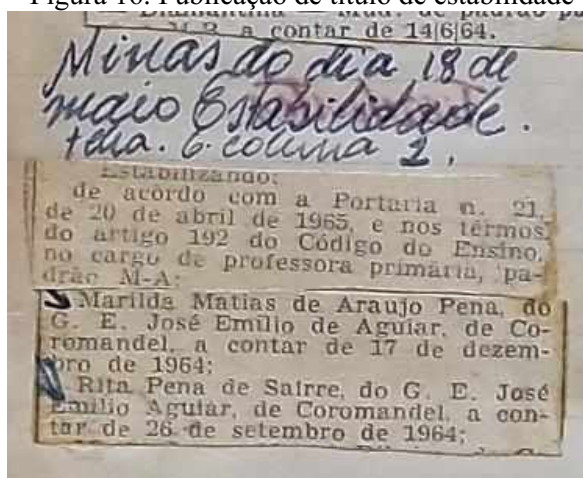 Figura 16: Publicação de título de estabilidade
Diamantina — Mud. de padrão
M-B a contar de 14|6|64.
Minas do dia 18 de
maio Estabilidade.
6 coluna 2,
Estabilizando:
de acordo com a Portaria n. 21,
de 20 de abril de 1965, e nos têrmos
do artigo 192 do Código do Ensino,
no cargo de professora primária, pa-
drão M-A:
Marilda Matias de Araujo Pena, do
G. E. José Emílio de Aguiar, de Co-
romandel, a contar de 17 de dezem-
bro de 1964;
Rita Pena de Sairre, do G. E. José
Emilio Aguiar, de Coromandel, a con-
tar de 26 de setembro de 1964;